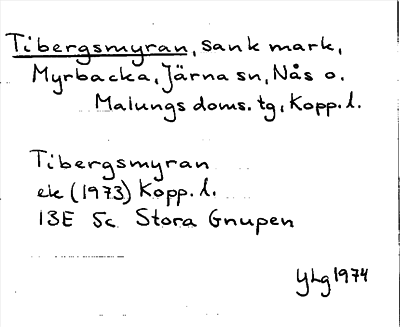 Tibergsmyran, sank mark,
Myrbacka, Järna sn, Nås o.
Malungs doms. tg, Kopp. l.
Tibergsmyran
ek (1973) Kopp. l.
13E 5c Stora Gnupen
YLg 1974